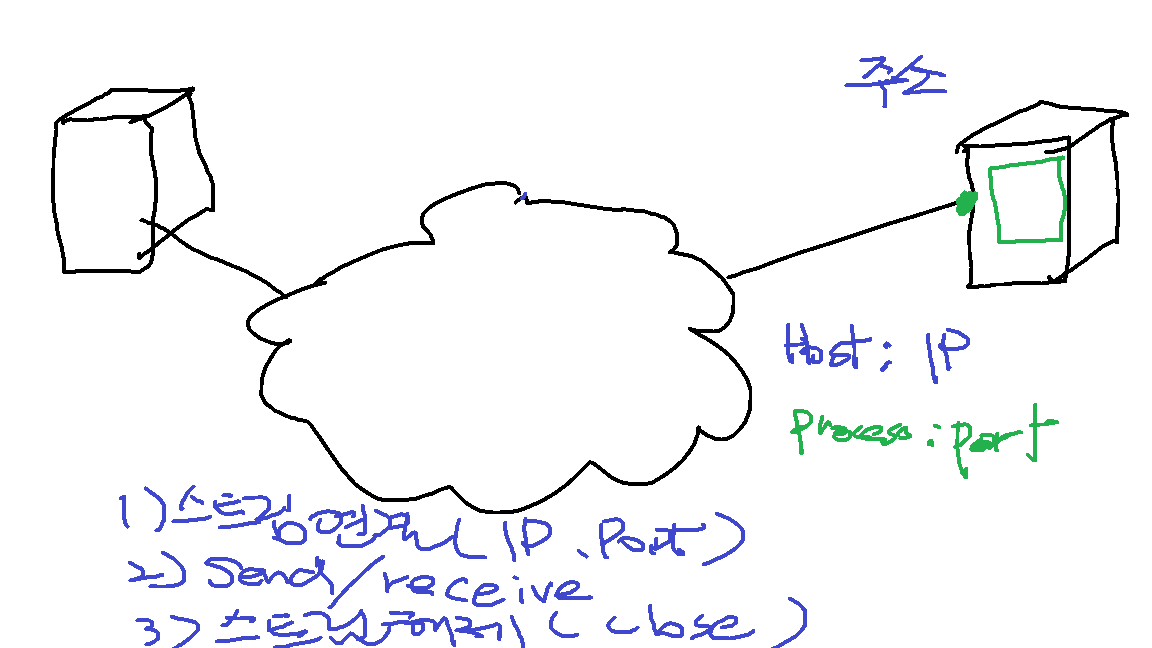 주소
Host : IP
process : port
1) 스트림연결( IP, Port )
2) Send/receive
3) 스트림해제( close )